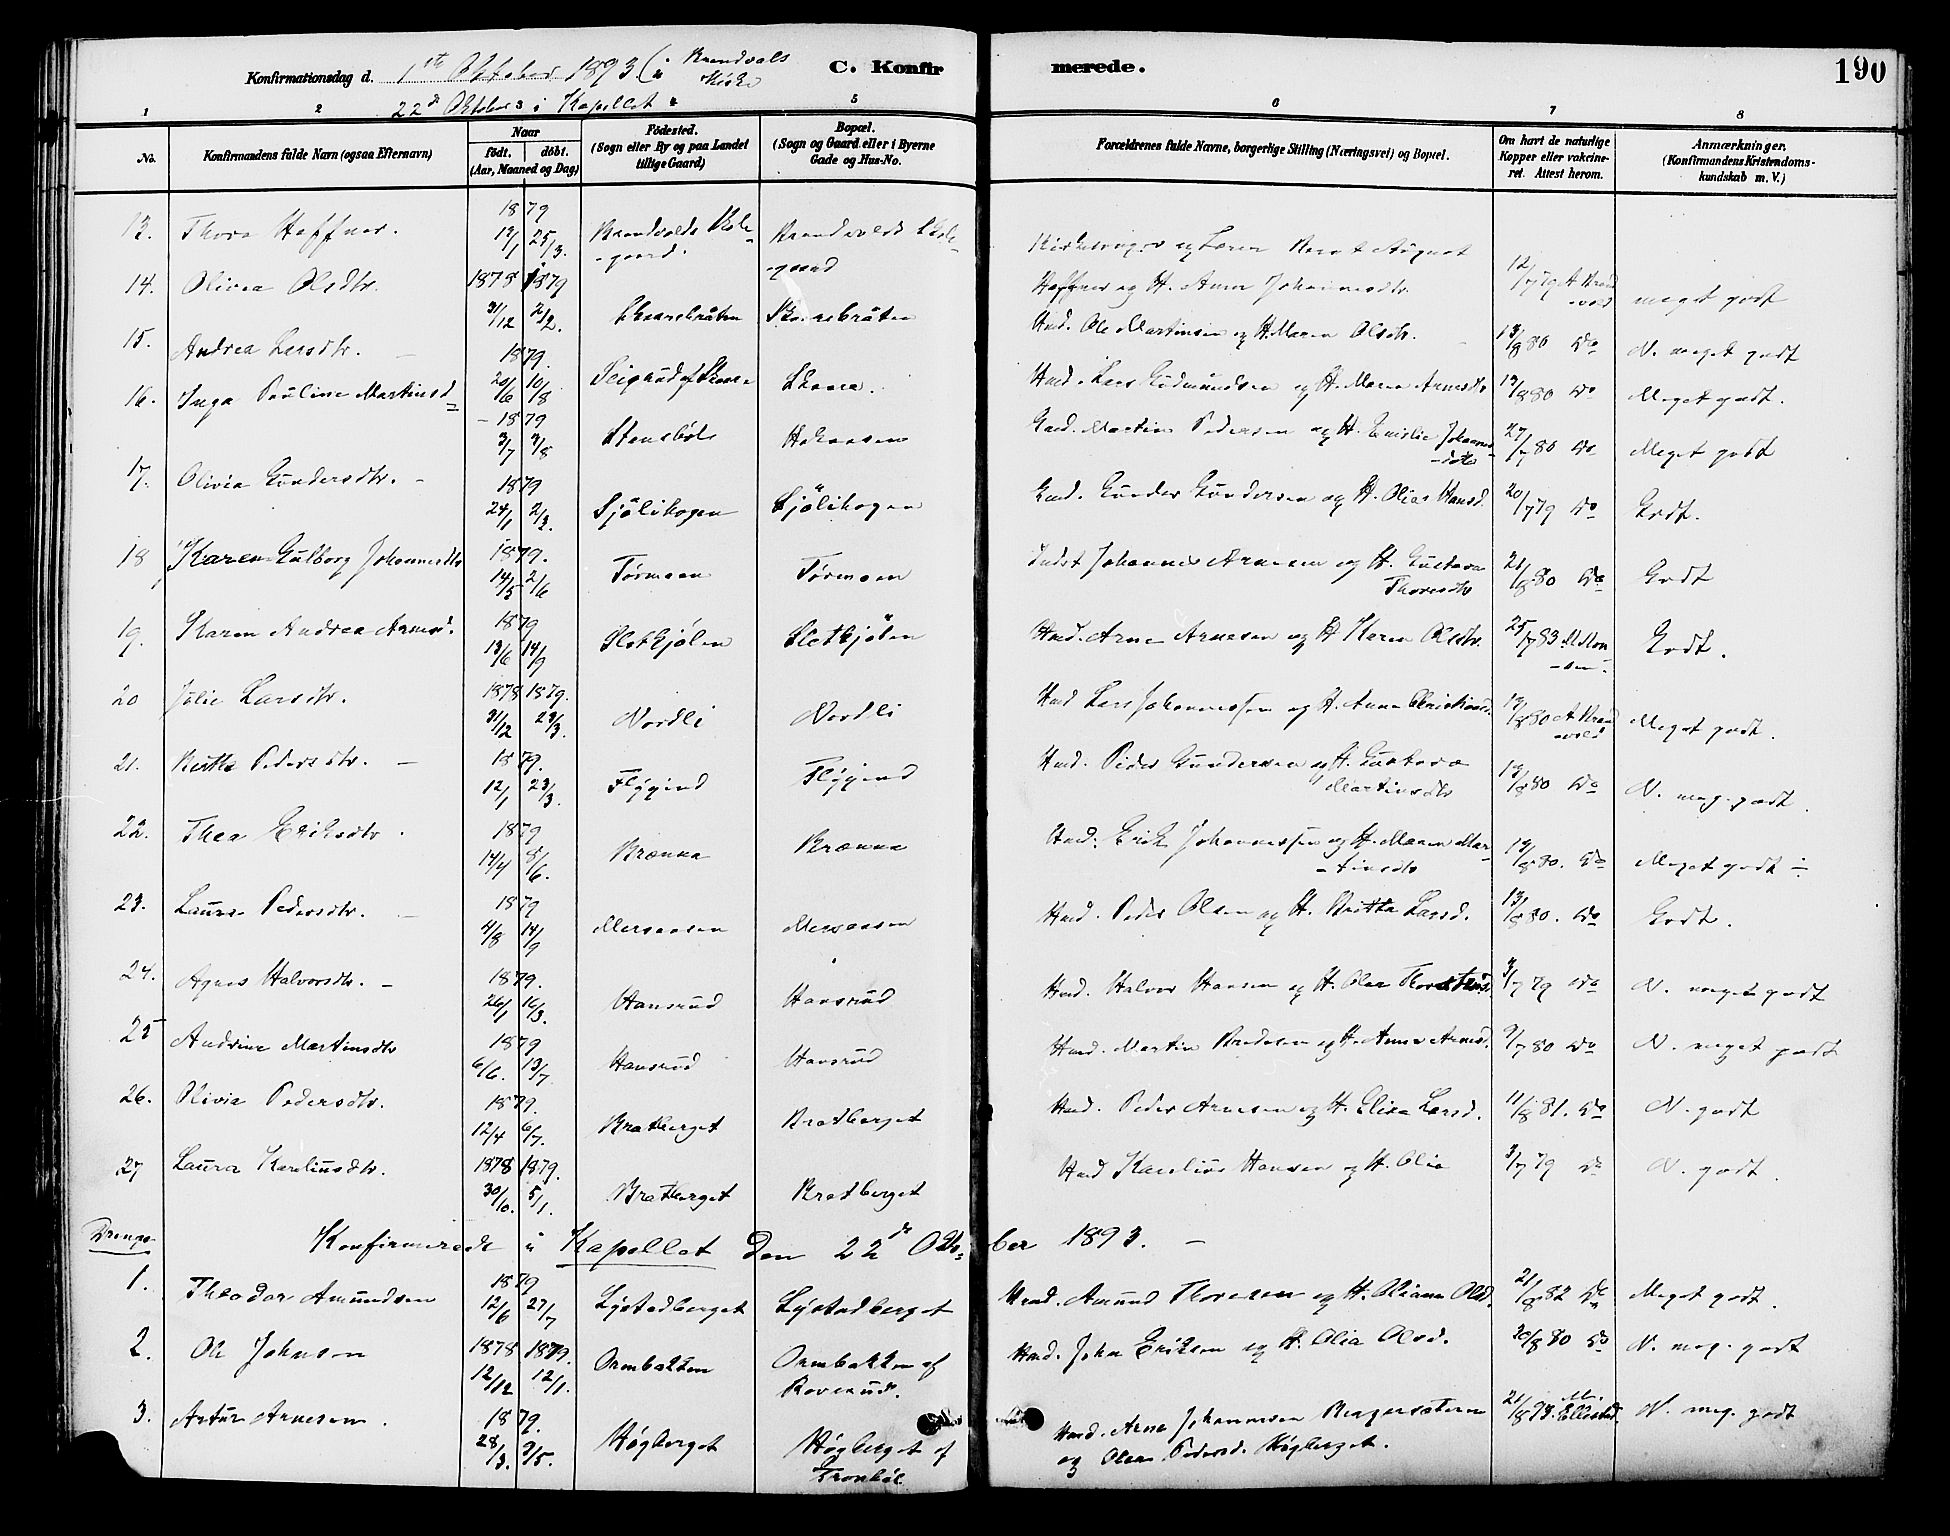 Konfirmationsdag d. 1ste Oktober 1893 (i Brandvals Kirke
C. Konfirmerede. 190
22de Oktober i Kapellet
1 2 5 6 7 8
No. Konfirmandens fulde Navn (ogsaa Efternavn) Naar født. døbt. (Aar, Maaned og Dag) Fødested. (Sogn eller By og paa Landet tillige Gaard) Bopæl. (Sogn og Gaard eller i Byerne Gade og Hus-No. Forældrenes fulde Navne, borgerlige Stilling (Næringsvei) og Bopæl. Om havt de naturlige Kopper eller vakcineret. Attest herom. Anmærkninger. (Konfirmandens Kristendomskundskab m. V.)
13. Thora Høffner. 1879 25/3. Brandvolds Skole-gaard. Brandvolds Skole-gaard Kirkesanger og Lærer August
Høffner og H. Anne Johannesdtr. 12/7 79 A Brandvold meget godt
14. Olivia Olsdtr. 1878 1879 31/12 2/2. Skaarebråten Skaarebråten Hmd. Ole Martinsen og H. Maren Olsdtr. 13/8 80 Do N. meget godt
15. Andrea Larsdtr. 1879. 20/6 10/8 Skara. Hmd. Lars Gudmundsen og H. Maren Arnesdtr 13/8 80 Do Meget godt.
16. Inga Pauline Martinsd 1879 3/7 3/8 Stensbøl Hakaasen Gmd. Martin Pedersen og H. Emilie Johannesdtr 27/7 80 Do Meget godt
17. Olivia Gundersdtr. 1879 24/1 2/3. Sjølihogen Sjølihogen Gmd. Gunder Gundersen og H. Olia Hansd. 20/7 79 Do Godt.
18 Karen Gulborg Johannesdtr 1879. 14/5 2/6 Tørmoen Tørmoen Johannes Arnesen og H. Gustava Thoresdtr 21/8 80 Do Godt
19. Karen Andrea Arnesd. 1879 13/6 14/9 Sletkjølen Sletkjølen Hmd. Arne Arnesen og H Karen Olsdtr. 25/7 83 Godt.
20 Julie Larsdtr. 1878 1879. 31/12 23/3. Nordli Nordli Hmd Lars Johannessen og H. Anne Christiansd. 13/8 80 A Brandvold Meget godt.
21. Pedersdtr. 1879. 12/1 23/3. Fløgind Fløgind Hmd. Peder Gundersen og H. Gustava Martinsdtr 13/8 80 Do N. meg. godt.
22. Thea Eriksdtr. 1879 14/4 8/6. Brænna Brænna Hmd. Erik Johannessen og H. Maren Martinsdtr 13/8 80. Do Meget godt ÷
23. Laura Pedersdtr. 1879 4/8 14/9 Meraasen Meraasen Hmd. Peder Olsen og H. Britta Larsd. 13/8 80. Do Godt.
24. Agnes Halvorsdtr. 1879. 26/1 16/3. Hansrud Hansrud Hmd. Halvor Hansen og H. Olea 3/7 79 Do N. meget godt
25 Andrine Martinsdtr 1879 6/6. 13/7. Hansrud Hansrud Hmd. Martin og H. Anne Arnesd. 9/7 80 Do N. meget godt
26. Olivia Pedersdtr. 1879. 12/4 6/7. Bratberget Bratberget Hmd. Peder Arnesen og H. Elisa Larsd. 11/8 81. Do N. godt
27 Laura Kareliusdtr. 1878 1879. 30/10. 5/1. Bratberget Bratberget Hmd Karelius Hansen og H. Olia 3/7 79 Do N. godt.
Drenge Konfirmerede i Kapellet den 22de Oktober 1893.
1. Theodor Amundsen 1879 12/6 27/7 Lystadberget Lystadberget Hmd. Amund Thoresen og H. Oliane Olsd. 21/8 82 Do Meget godt.
2. Ole Johnsen 1878 1879. 12/12 12/1. Ormbakken Ormbakken af Roverud. Hmd. John Eriksen og H. Olia Olsd. 20/8 80 Do N. meg. godt
3. Artur Arnesen. 1879. 28/3. 9/5. Høgberget Høgberget af Tronbøl Hmd. Arne Johannesen
og Olea Pedersd. Høgberget. 21/8 93. M. Ellestad N. meg. godt